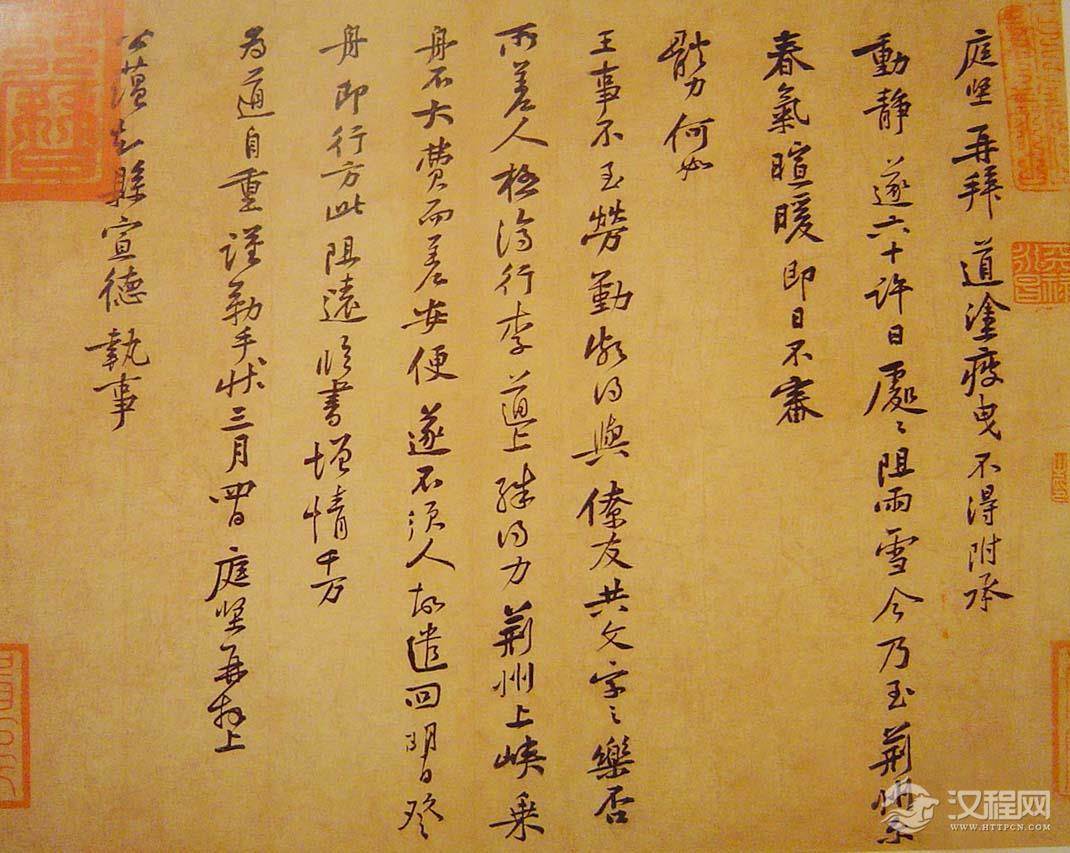 庭坚再拜道塗疲曳不得附承
動靜遂六十許日處〻阻雨雪今乃至荆州
春氣暄暖即日不審
體力何如
王事不至勞勤頗得與僚友共文字之樂否
所差人極濟行李道上殊得力荆州上峽乗
舟不大費而差安便遂不須人故遣回明日登
舟即行方此阻遠臨書增情千万
為道自重謹勒手狀三月四日庭坚再拜上
公藴知縣宣德執事
汉程网
WWW.HTTPCN.COM